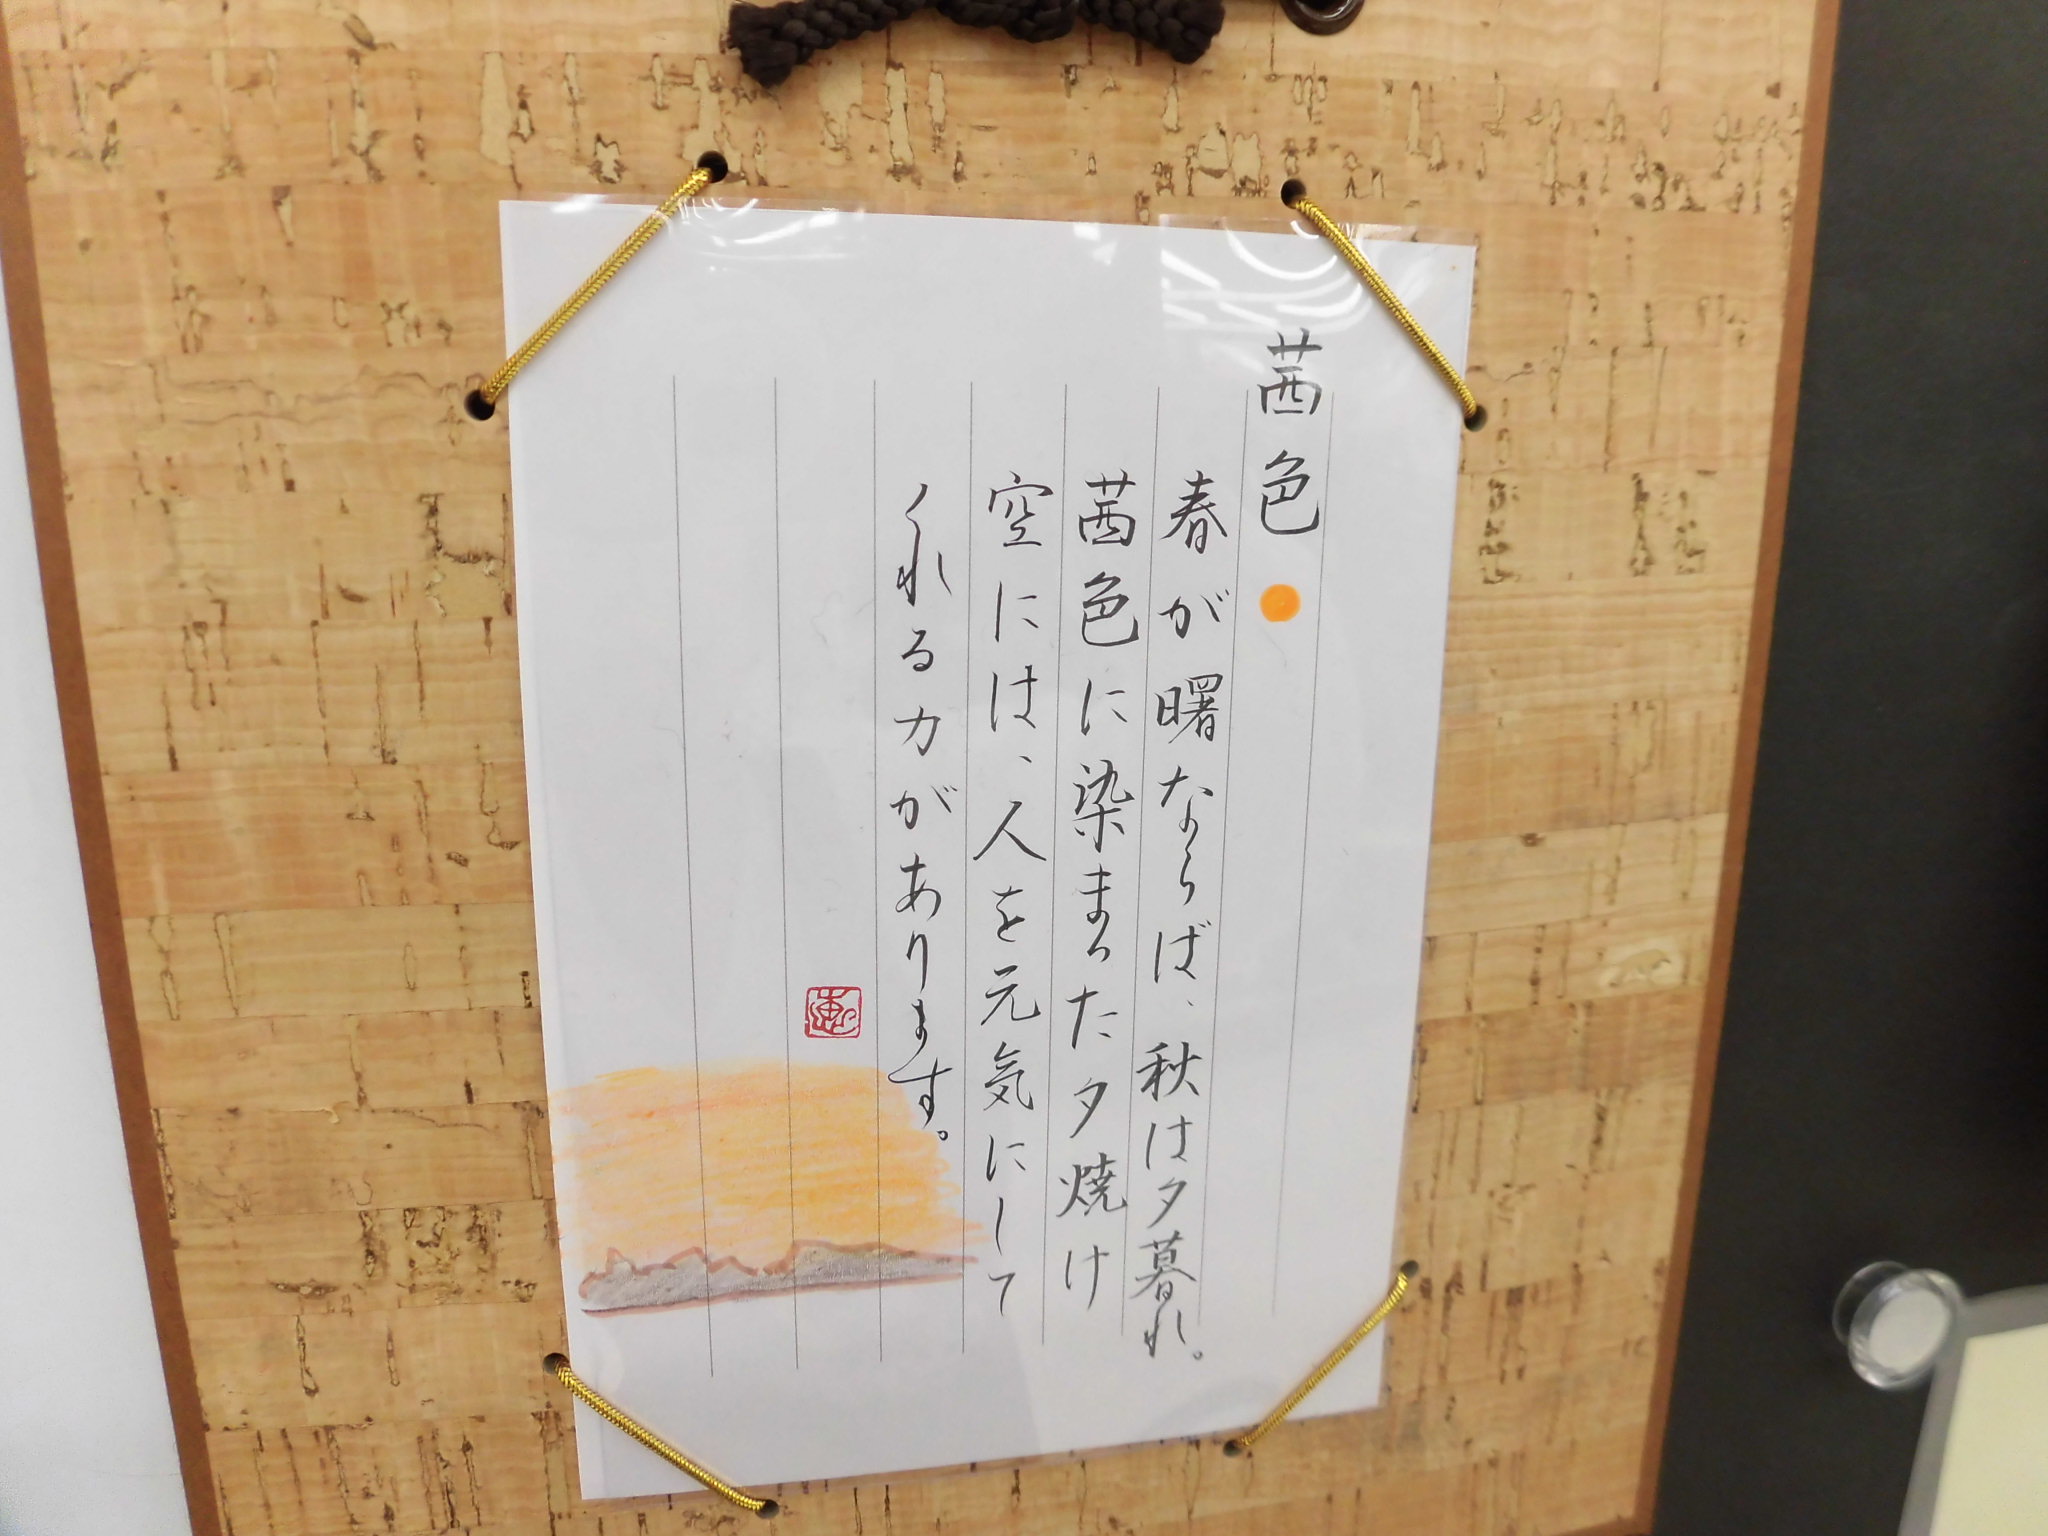 茜色
春が曙ならば、秋は夕暮れ。
茜色に染まった夕焼け
空には、人を元気にして
くれる力があります。